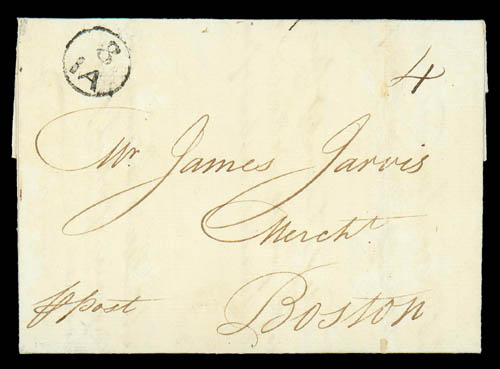 8
IA
4
Mr. James Jarvis
Mercht
Boston
⅌ post